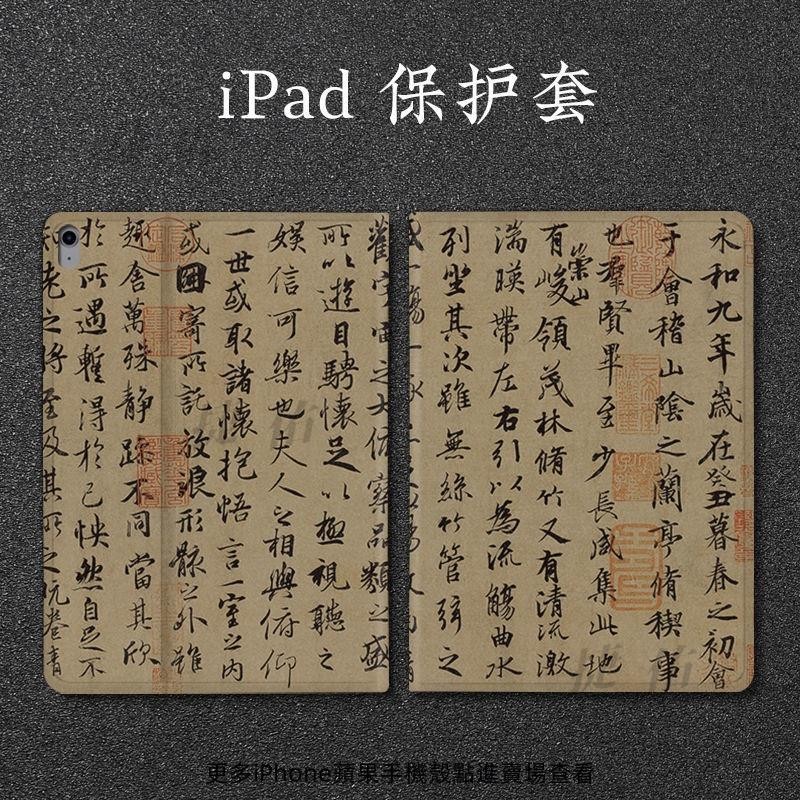 iPad 保护套
永和九年歲在癸丑暮春之初會
于會稽山陰之蘭亭脩稧事
也羣賢畢至少長咸集此地
有崇山峻領茂林脩竹又有清流激
湍暎帶左右引以為流觴曲水
列坐其次雖無絲竹管弦之
觀宇宙之大俯察品類之盛
所以遊目騁懷足以極視聽之
娛信可樂也夫人之相與俯仰
一世或取諸懷抱悟言一室之內
或因寄所託放浪形骸之外雖
趣舍萬殊靜躁不同當其欣
於所遇暫得於己怏然自足不
知老之將至及其所之
更多iPhone蘋果手機殼點進賣場查看